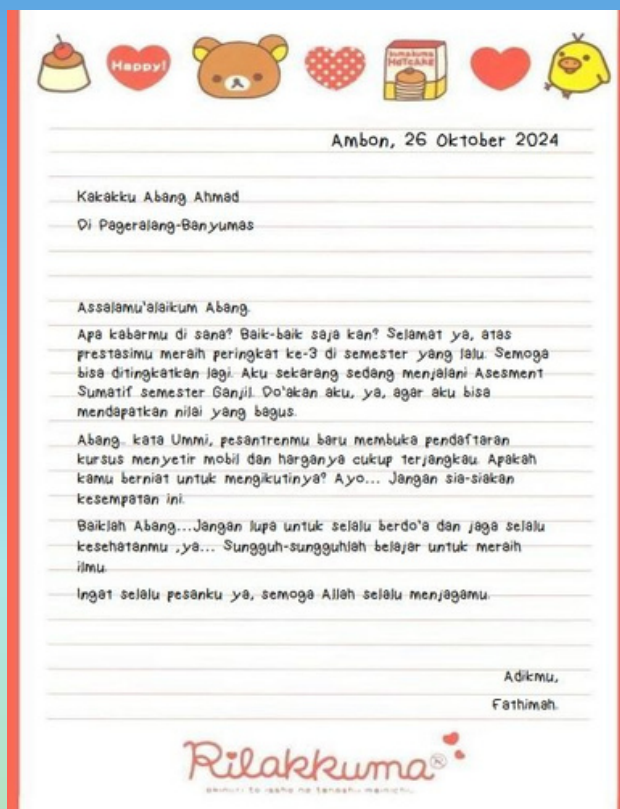 Happy!
kumakuma
HOTCAKE
Ambon, 26 Oktober 2024
Kakakku Abang Ahmad
Di Pageralang-Banyumas
Assalamu'alaikum Abang.
Apa kabarmu di sana? Baik-baik saja kan? Selamat ya, atas
prestasimu meraih peringkat ke-3 di semester yang lalu. Semoga
bisa ditingkatkan lagi. Aku sekarang sedang menjalani Asesment
Sumatif semester Ganjil. Do'akan aku, ya, agar aku bisa
mendapatkan nilai yang bagus.
Abang.. kata Ummi, pesantrenmu baru membuka pendaftaran
kursus menyetir mobil dan harganya cukup terjangkau. Apakah
kamu berniat untuk mengikutinya? Ayo... Jangan sia-siakan
kesempatan ini.
Baiklah Abang...Jangan lupa untuk selalu berdo'a dan jaga selalu
kesehatanmu ,ya... Sungguh-sungguhlah belajar untuk meraih
ilmu.
Ingat selalu pesanku ya, semoga Allah selalu menjagamu.
Adikmu,
Fathimah.
Rilakkuma®